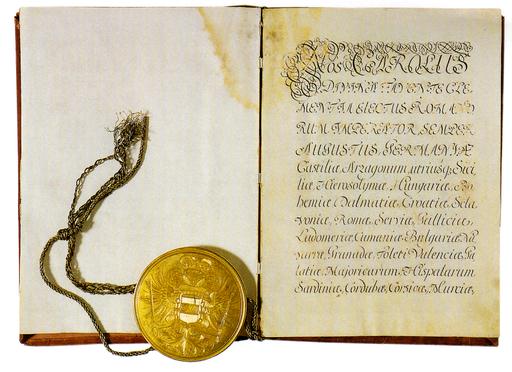 NOS CAROLUS
DIVINA FAVENTE CLE-
MENTIA ELECTUS ROMANO
RUM IMPERATOR SEMPER
AUGUSTUS, GERMANIÆ
Castiliæ Arragonum, utriusq; Sici
liæ Hierosolymæ, Hungariæ, Bo
hemiæ Dalmatiæ Croatiæ Scla
voniæ, Ramæ Serviæ Galliciæ
Lodomeriæ Cumaniæ Bulgariæ Na
varræ Granadæ Toleti Valenciæ, Ga
latiæ, Majoricarum, Hispalarum
Sardiniæ, Cordubæ, Corsicæ, Murciæ,